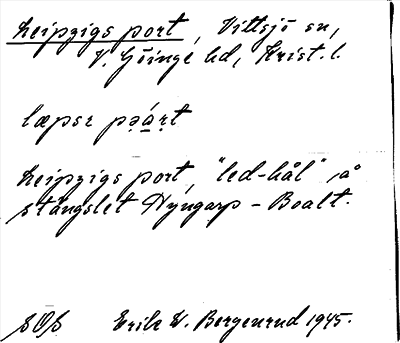 Leipzigs port, Vittsjö sn,
V. Göinge hd, Krist. l.
læpsr pə̣á̱ṛt
Leipzigs port, "led-hål", å
stängslet Hyngarp - Boalt.
SOS Erik W. Bergenrud 1945.